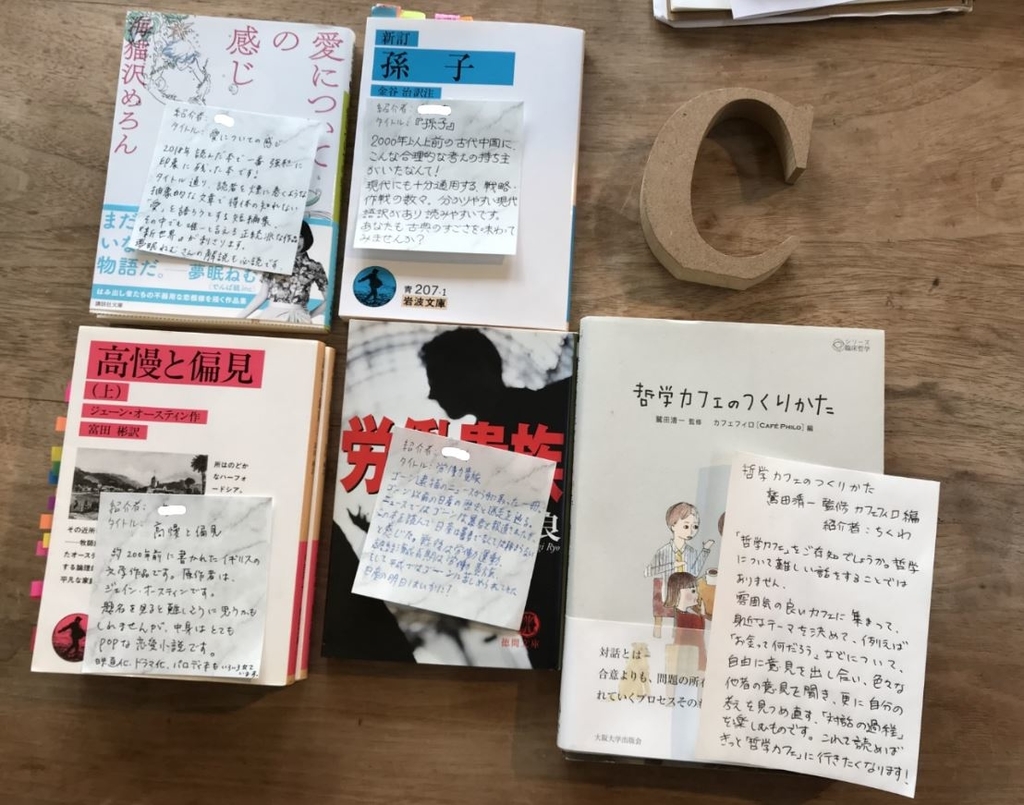 愛について
の
感じ
海猫沢めろん
紹介者:
タイトル: 愛についての感じ
2018年読んだ本で一番強烈に
印象に残った本です!
タイトル通り、読者を煙に巻くような
抽象的な文章で得体の知れない
「愛」を語ろうとする短編集。
その中でも唯一と言える正統派な作品
「新世界」が刺さります。
夢眠ねむさんの解説も必読です。
まだ
いな
物語だ。
夢眠ねむ
(でんぱ組.inc)
はみ出し者たちの不器用な恋模様を描く作品集
講談社文庫
新訂
孫子
金谷 治訳注
紹介者:
タイトル:『孫子』
2000年以上前の古代中国に、
こんな合理的な考えの持ち主
がいたなんて!
現代にも十分通用する、戦略・
作戦の数々。分かりやすい現代
語訳があり読みやすいです。
あなたも古典のすごさを味わって
みませんか?
青 207-1
岩波文庫
C
高慢と偏見
(上)
ジェーン・オースティン作
富田 彬訳
所はのどか
なハーフォ
ードシア。
その近所
紹介者:
タイトル: 高慢と偏見
約200年前に書かれたイギリスの
文学作品です。原作者は、
ジェイン・オースティンです。
題名を見ると難しそうに思うかも
しれませんが、中身はとても
POPな恋愛小説です。
映画化、ドラマ化、パロディ本もいろいろ出て
います。
労働貴族
良
gi Ryo
紹介者:
タイトル:労働貴族
徳間文庫
シリーズ
臨床哲学
哲学カフェのつくりかた
鷲田清一 監修 カフェフィロ [CAFÉ PHILO] 編
対話とは—
合意よりも、問題の所
れていくプロセスその
大阪大学出版会
哲学カフェのつくりかた
鷲田清一 監修 カフェフィロ 編
紹介者:ちくわ
「哲学カフェ」をご存知でしょうか。哲学
について難しい話をすることでは
ありません。
雰囲気の良いカフェに集まって、
身近なテーマを決めて、例えば
「お金って何だろう」などについて、
自由に意見を出し合い、色々な
他者の意見を聞き、更に自分の
考えを見つめ直す、「対話の過程」
を楽しむものです。これを読めば
きっと「哲学カフェ」に行きたくなります!